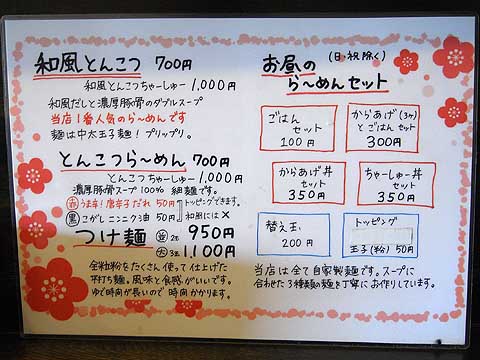 和風とんこつ 700円
和風とんこつちゃーしゅー 1,000円
和風だしと濃厚豚骨のダブルスープ
当店1番人気のら〜めんです
麺は中太玉子麺！プリップリ。
とんこつら〜めん 700円
とんこつちゃーしゅー 1,000円
濃厚豚骨スープ100% 細麺です。
赤 うま辛！唐辛子だれ 50円
黒 こがしニンニクラ油 50円
トッピングできます。
和風には×
つけ麺 並 2玉 950円
大 3玉 1,100円
全粒粉をたくさん使って仕上げた
平打ち麺。風味と食感がいいです。
ゆで時間が長いので時間かかります。
お昼の (日・祝除く)
ら〜めんセット
ごはん
セット
100円
からあげ(3ヶ)
とごはんセット
300円
からあげ丼
セット
350円
ちゃーしゅー丼
セット
350円
替え玉
200円
トッピング
玉子(粉) 50円
当店は全て自家製麺です。スープに
合わせた3種類の麺を丁寧にお作りしています。